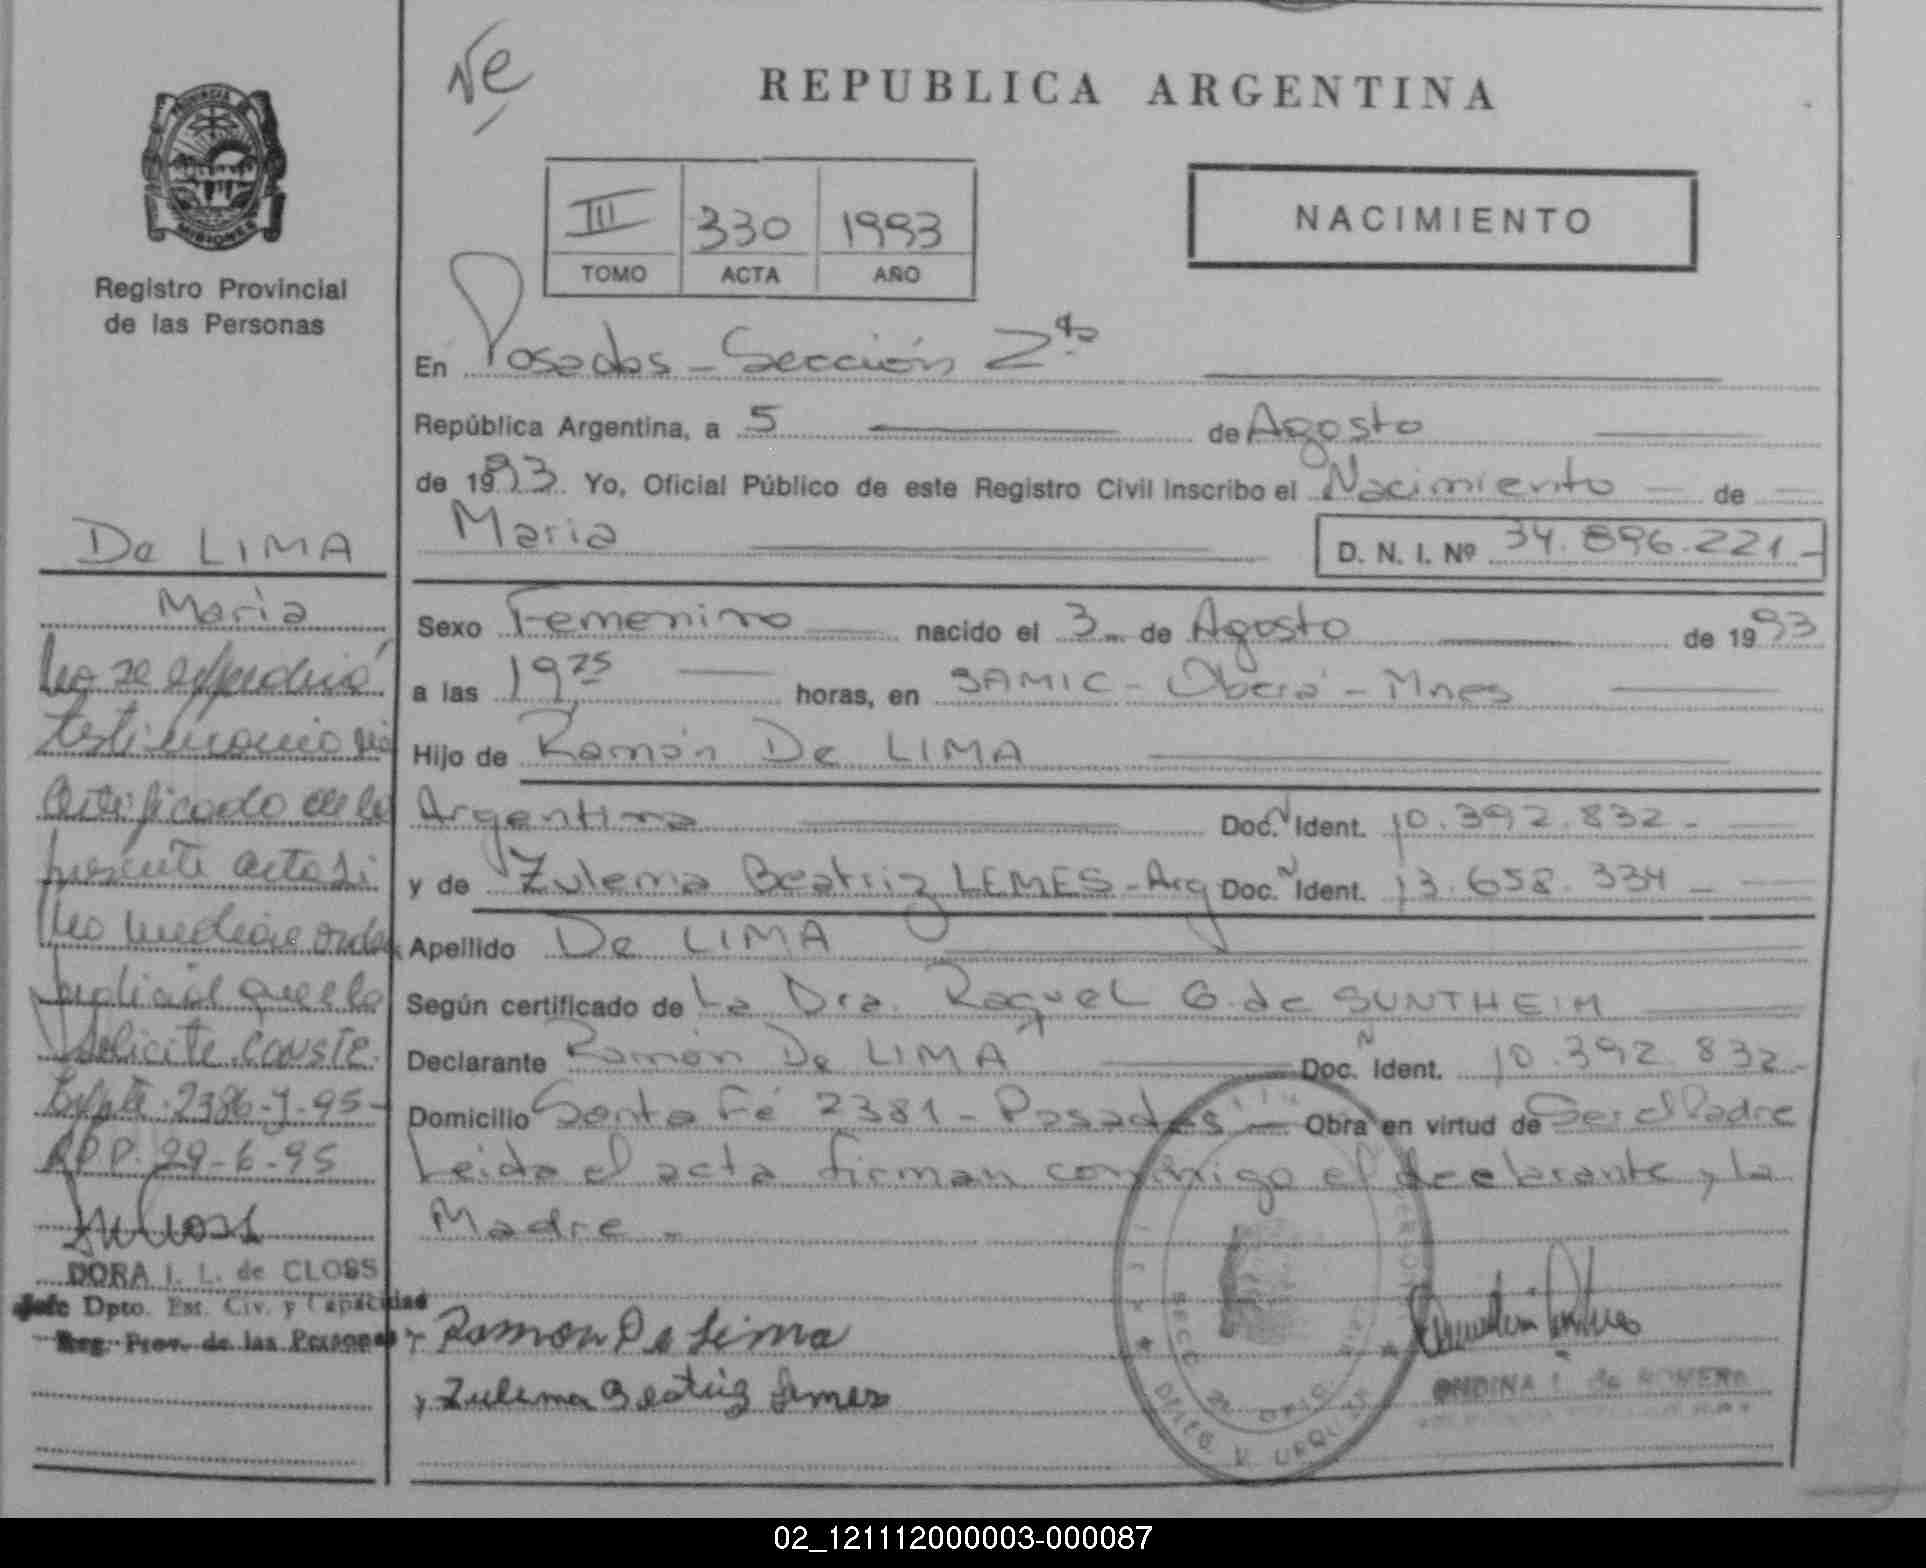 Ne
REPUBLICA ARGENTINA
PROVINCIA DE
MISIONES
Registro Provincial
de las Personas
III 330 1993
TOMO ACTA AÑO
NACIMIENTO
En Posadas - Sección 2da
República Argentina, a 5 de Agosto
de 1993. Yo, Oficial Público de este Registro Civil inscribo el Nacimiento de
Maria D. N. I. Nº 34.896.221-
Sexo Femenino nacido el 3 de Agosto de 1993
a las 19 25 horas, en SAMIC - Oberá - Mnes
Hijo de Ramón De LIMA
Argentina Doc. N Ident. 10.392.832-
y de Zulema Beatriz LEMES - Arg Doc. N Ident. 13.658.334-
Apellido De LIMA
Según certificado de La Dra. Raquel G. de SUNTHEIM
Declarante Ramón De LIMA Doc. N Ident. 10.392.832-
Domicilio Santa Fé 2381 - Posadas - Obra en virtud de Ser el Padre
Leida el acta firman conmigo el declarante y la
Madre -
Ramon De Lima
Zulema Beatriz Lemes
ONDINA de ROMERO
SECC 2
DELEG. V. URQUIZA
De LIMA
Maria
No se expedirá
testimonio ni
certificado de la
presente acta si
no mediare orden
judicial que lo
solicite. Conste.
Expte. 2386-J-95-
RPP. 29-6-95
DORA I. L. de CLOSS
Jefe Dpto. Est. Civ. y Capacidad
Reg. Prov. de las Personas
02_121112000003-000087